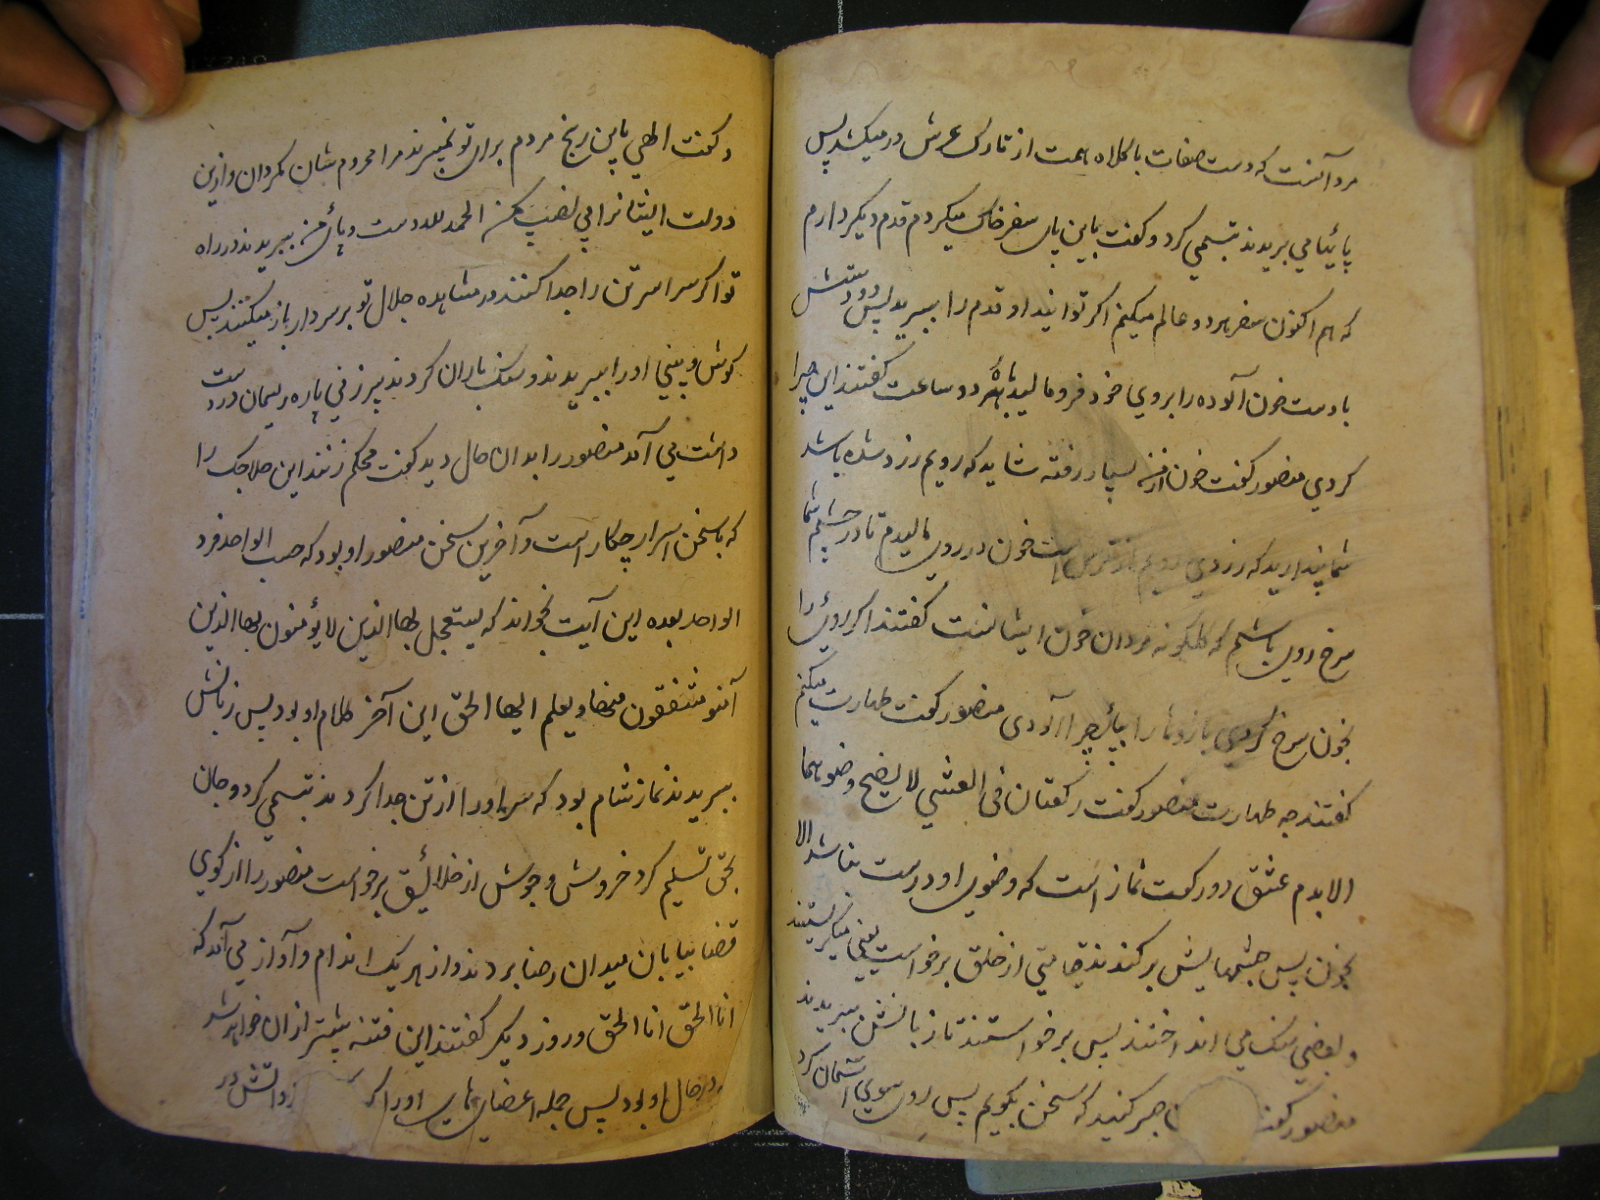 مرد آنست که دست صفات با کلاه همت از تارک عرش در میکشد پس
پائها می بریدند تبسمی کرد و گفت باین پای سفر خاک میکردم قدم دیگر دارم
که هم اکنون سفر هر دو عالم میکنم اگر توانید او قدم را ببرید پس دو دستش
با دست خون آلوده را بروی خود فرو مالید دو ساعت گفتند این چرا
کردی منصور گفت خون از من بسیار رفته شاید که رویم زرد شده باشد
شما پندارید که زردی رویم از ترس است خون در روی مالیدم تا در چشم شما
سرخ روی باشم که گلگونه مردان خون ایشانست گفتند اگر روی را
بخون سرخ کردی بازوها را چرا آلودی منصور گفت طهارت میکنم
گفتند چه طهارت منصور گفت رکعتان فی العشق لا یصح وضوءهما
الا بدم عشق دو رکعت نماز است که وضوی او درست نباشد الا
بخون پس چشمهایش برکندند قیامتی از خلق برخواست بعضی میگریستند
و بعضی سنگ می انداختند پس برخواستند تا زبانش ببریدند
منصور گفت صبر کنید که سخن بگویم پس روی سوی آسمان کرد
و گفت الهی باین رنج مردم برای تو نمیبرند مرا محروم شان مگردان و ازین
دولت ایشانرا بی نصیب مکن الحمد لله دست و پای من ببریدند در راه
تو اگر سر از تن را جدا کنند در مشاهده جلال تو بر سر دار باز میکنند پس
گوش و بینی او را ببریدند و سنگ باران کردند پیرزنی پاره ریسمان در دست
داشت می آمد منصور را بدان حال دید گفت محکم زنند این حلاجک را
که با سخن اسرار چکار است و آخرین سخن منصور او بود که حسب الواحد فرد
الواحد بعده این آیت بخواند که یستعجل بها الذین لا یؤمنون بها الذین
آمنو مشفقون منها و یعلم انها الحق این آخر کلام او بود پس زبانش
ببریدند نماز شام بود که سر او را از تن جدا کردند تبسمی کرد و جان
بحق تسلیم کرد خروش و جوش از خلائیق برخواست منصور را از گوی
قضا بپایان میدان رضا بردند و از هر یک اندام و آواز می آمد که
انا الحق انا الحق و روز دیگر گفتند این فتنه بیشتر از ان خواهد شد
که در حال او بود پس جمله اعضای های او را در آتش